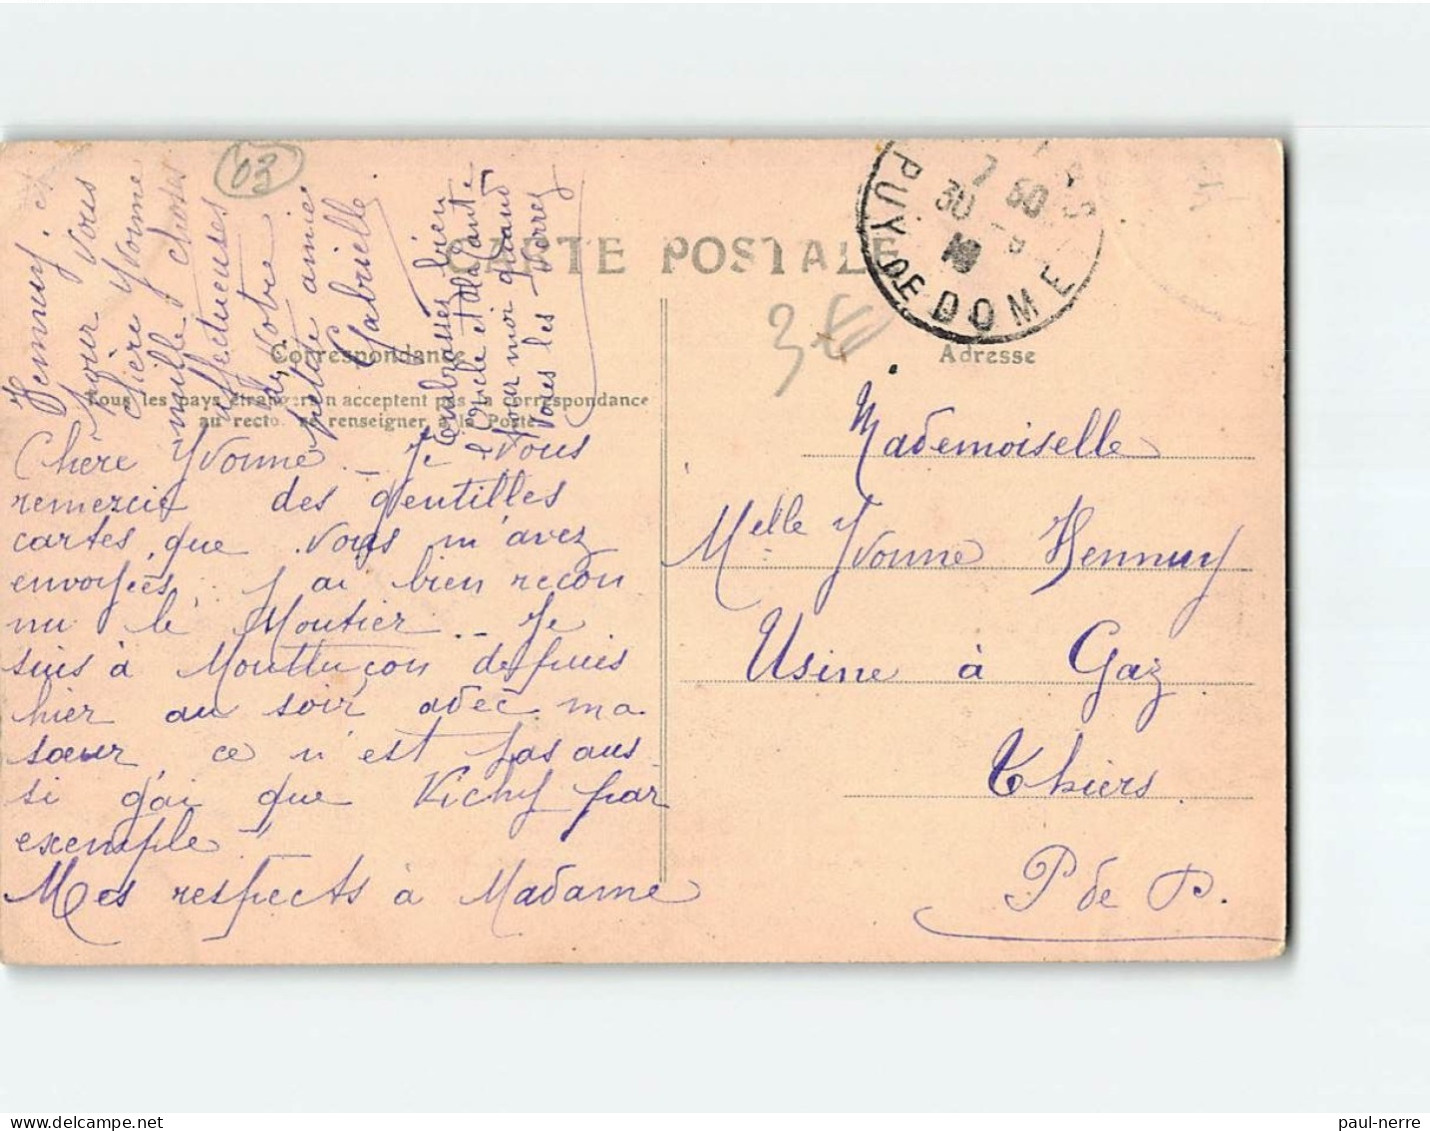 03
CARTE POSTALE
Correspondance
Adresse
Tous les pays étrangers n'acceptent pas la correspondance
au recto. se renseigner à la Poste
PUY DE DOME
7 50
30
3 €
Chère Yvonne _ Je vous
remercie des gentilles
cartes, que vous m'avez
envoyées. J'ai bien recon
nu le Moutier _ Je
suis à Montluçon depuis
hier au soir avec ma
sœur ce n'est pas aus
si gai que Vichy par
exemple
Mes respects à Madame
Hennuy, et
pour vous
chère Yvonne
mille choses
affectueuses
de votre
petite amie
Gabrielle
Embrasser bien
l'Oncle et la Tante
pour moi quand
vous les verrez
Mademoiselle
Melle Yvonne Hennuy
Usine à Gaz
Thiers
P. de D.
paul-nerre